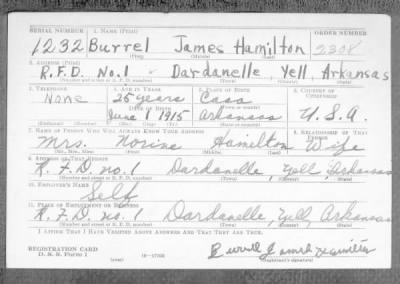 SERIAL NUMBER 1. NAME (Print) ORDER NUMBER
1232 Burrel James Hamilton 2308
(First) (Middle) (Last)
2. ADDRESS (Print)
R.F.D. No.1 - Dardanelle, Yell, Arkansas
(Number and street or R. F. D. number) (Town) (County) (State)
3. TELEPHONE 4. AGE IN YEARS 5. PLACE OF BIRTH 6. COUNTRY OF CITIZENSHIP
None 25 years Casa
DATE OF BIRTH
June 1 1915 Arkansas U.S.A.
7. NAME OF PERSON WHO WILL ALWAYS KNOW YOUR ADDRESS 8. RELATIONSHIP OF THAT PERSON
Mrs. Norine Hamilton Wife
(Mr., Mrs., Miss) (First) (Middle) (Last)
9. ADDRESS OF THAT PERSON
R. F. D. no. 1 Dardanelle, Yell, Arkansas
(Number and street or R. F. D. number) (Town) (County) (State)
10. EMPLOYER'S NAME
Self
11. PLACE OF EMPLOYMENT OR BUSINESS
R. F. D. no. 1 Dardanelle, Yell, Arkansas
(Number and street or R. F. D. number) (Town) (County) (State)
I AFFIRM THAT I HAVE VERIFIED ABOVE ANSWERS AND THAT THEY ARE TRUE.
REGISTRATION CARD
D. S. S. Form 1
(Registrant's signature)